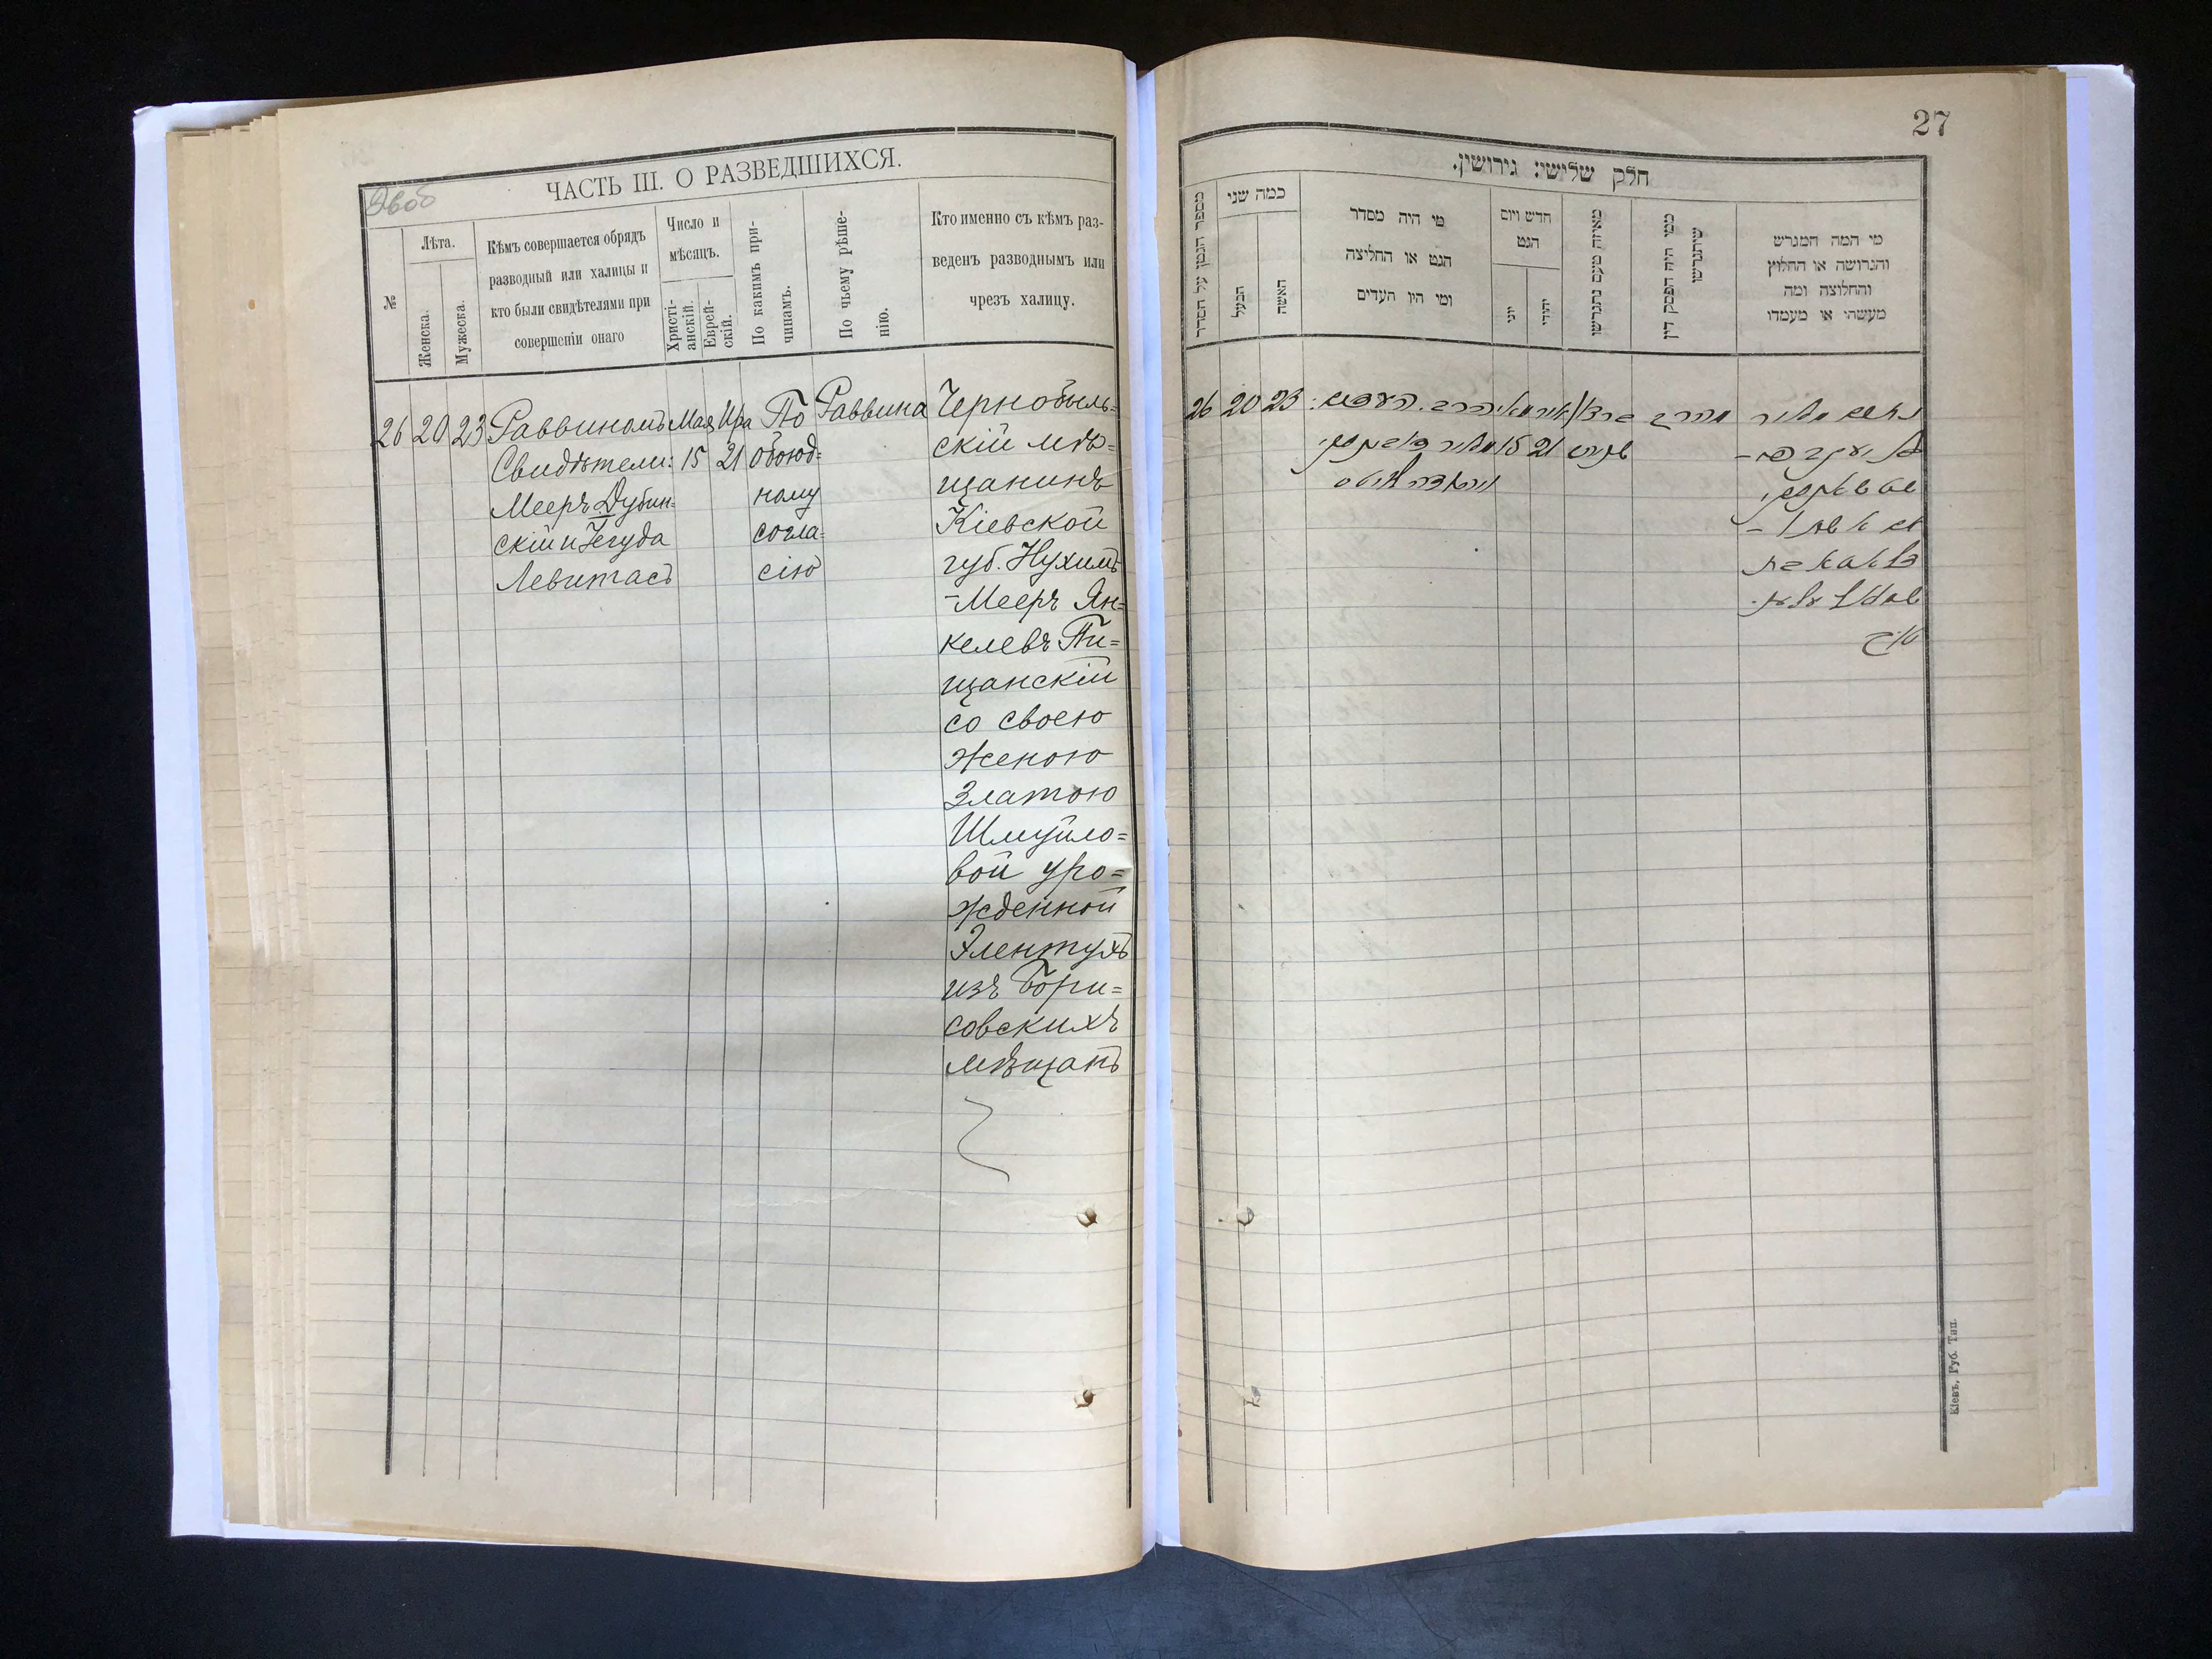 27
ЧАСТЬ III. О РАЗВЕДШИХСЯ.
№
Лѣта.
Женска.
Мужеска.
Кѣмъ совершается обрядъ
разводный или халицы и
кто были свидѣтелями при
совершеніи онаго
Число и
мѣсяцъ.
Христі-
анскій.
Еврей-
скій.
По какимъ при-
чинамъ.
По чьему рѣше-
нію.
Кто именно съ кѣмъ раз-
веденъ разводнымъ или
чрезъ халицу.
26
20
23
Раввиномъ
Свидѣтели:
Мееръ Дубин=
скій и Іегуда
Левитасъ
Мая
15
Ира
21
По
обоюд=
ному
согла=
сію
Раввина
Чернобыль=
скій мѣ=
щанинъ
Кіевской
губ. Нухимъ
-Мееръ Ян=
келевъ Пи=
щанскій
со своею
женою
Златою
Шмуйло=
вой уро=
жденной
Элентухъ
изъ Бори=
совскихъ
мѣщанъ
חלק שלישי: גירושין.
מספר הנטן על הסדר
כמה שני
הבעל
האשה
מי היה מסדר
הגט או החליצה
ומי היו העדים
חדש ויום
הגט
יוני
יהודי
מאיזה טעם נתגרשו
ממי היה הפסק דין
שיתגרשו
מי המה המגרש
והגרושה או החלוץ
והחלוצה ומה
מעשהו או מעמדו
26
20
23
15
21
Кіевъ, Губ. Тип.